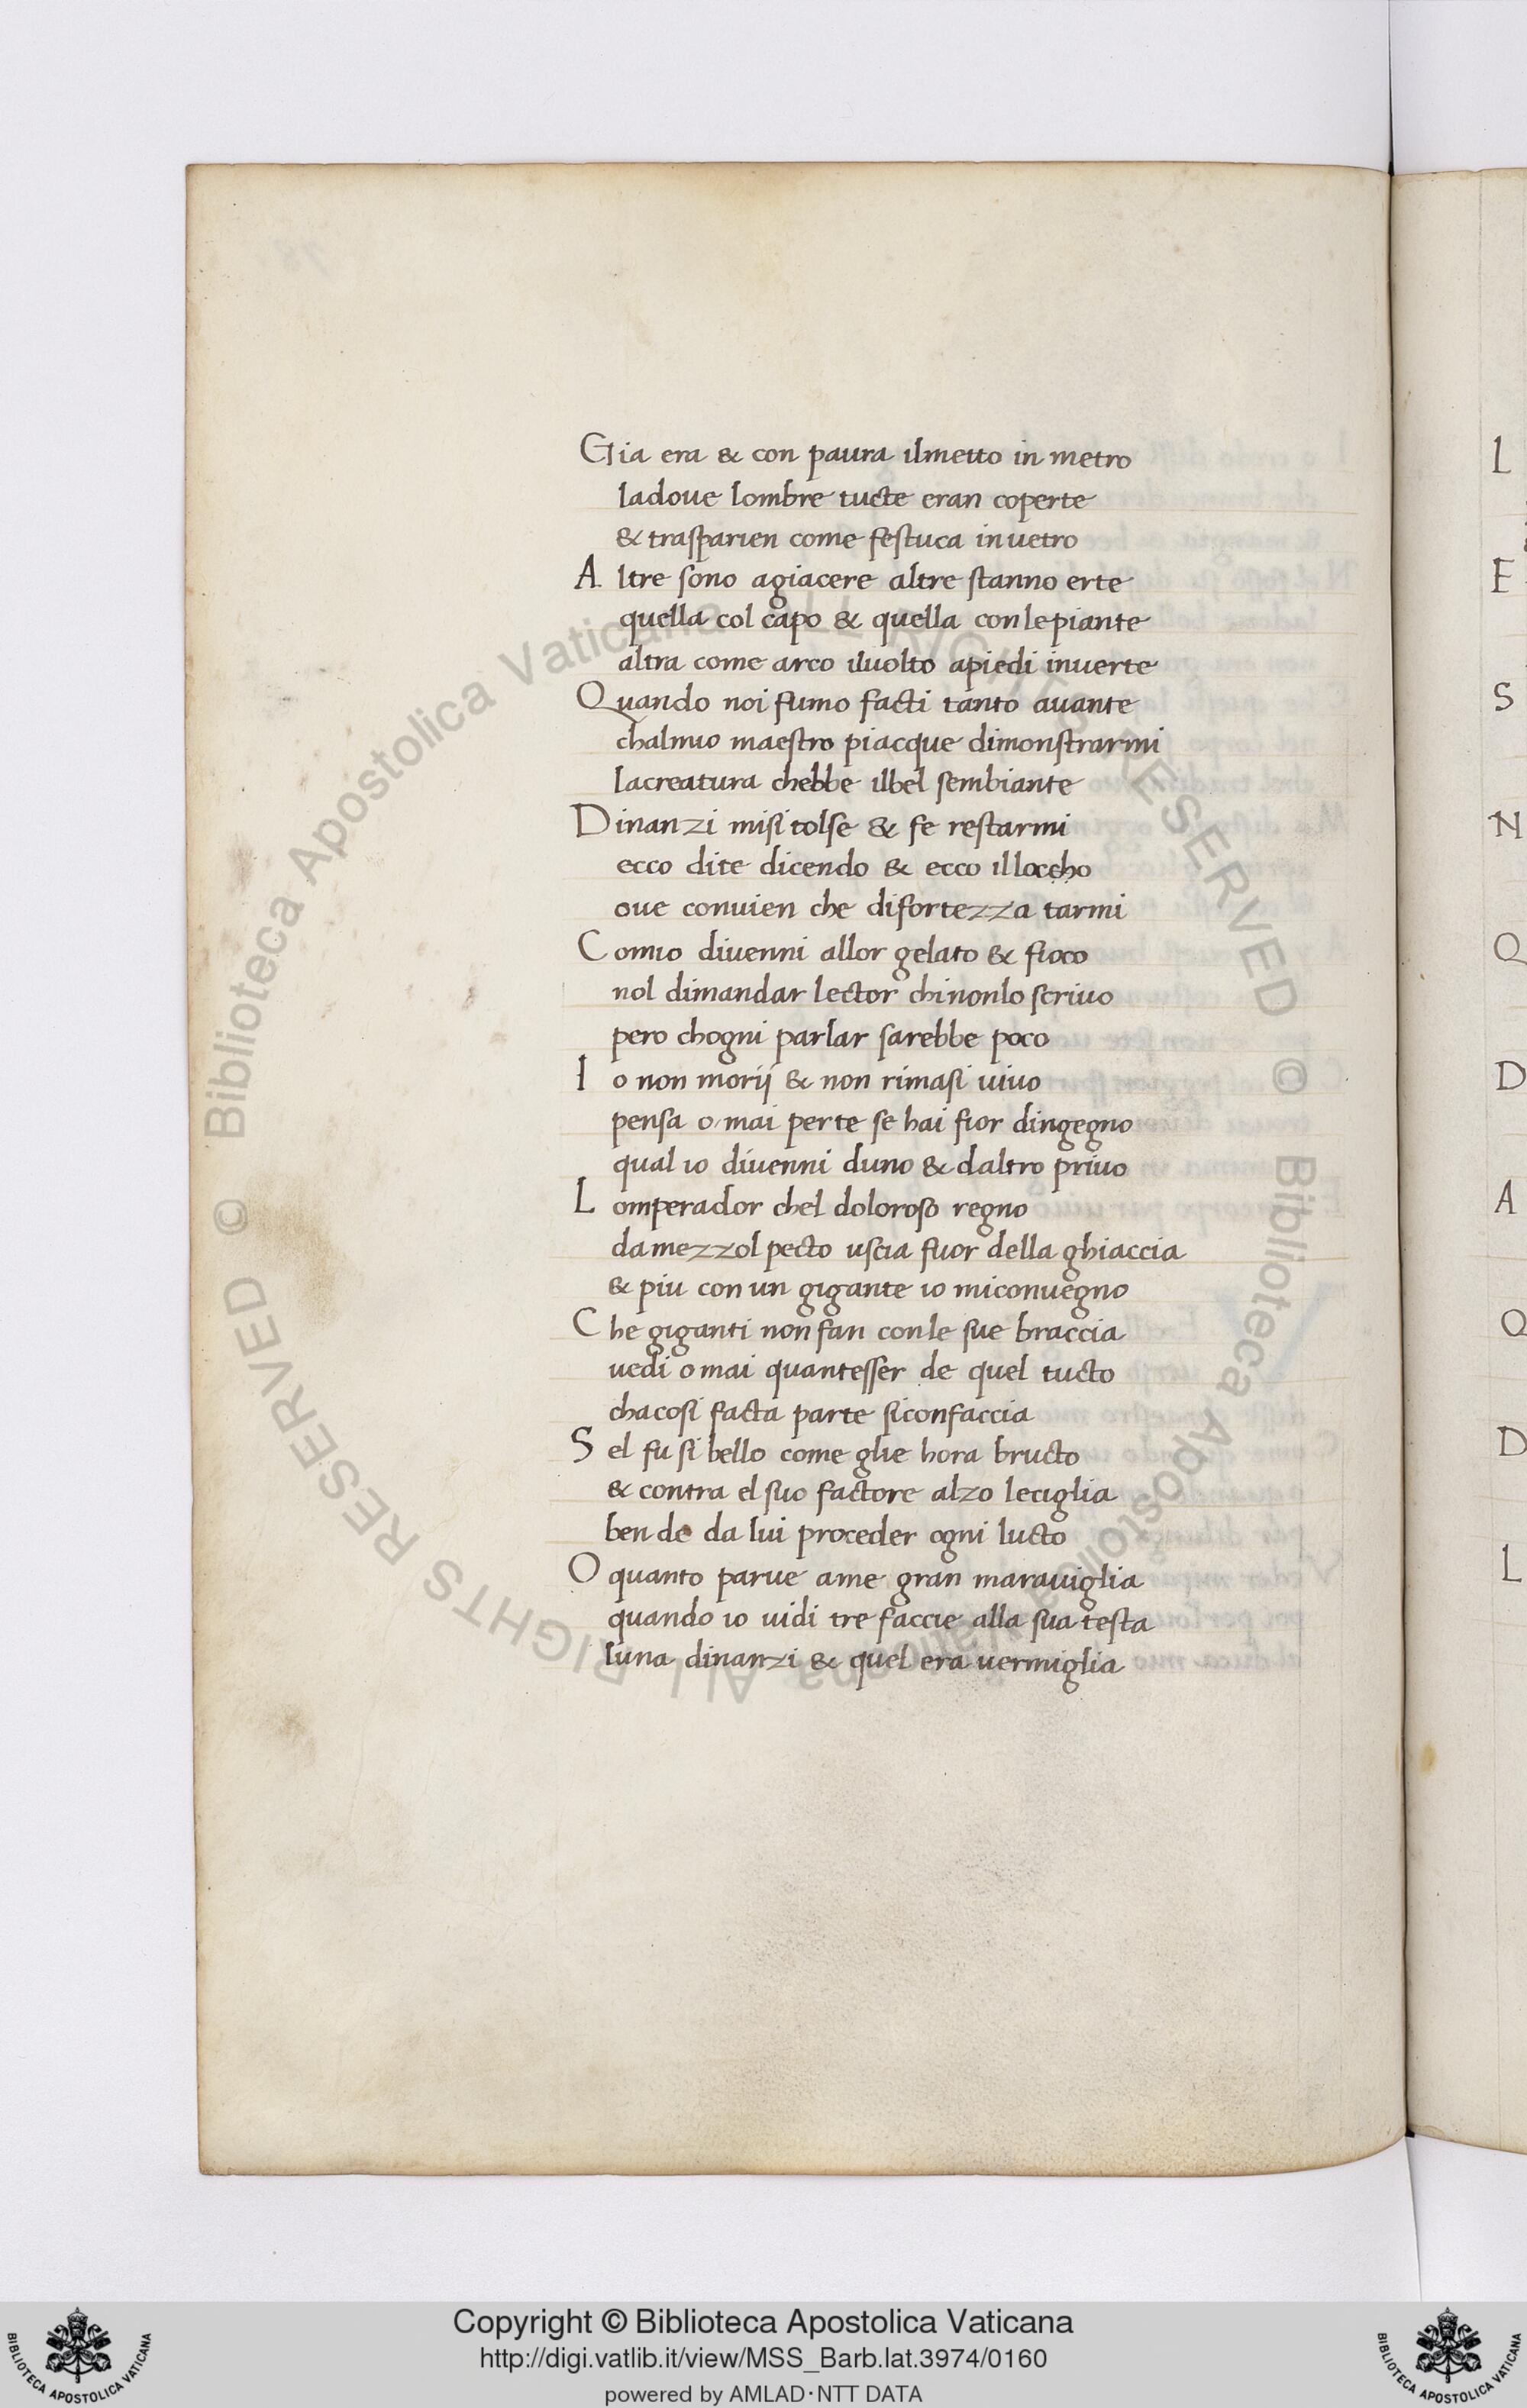 Gia era & con paura ilmetto in metro
ladoue lombre tucte eran coperte
& trasparien come festuca inuetro
Altre sono agiacere altre stanno erte
quella col capo & quella conlepiante
altra come arco iluolto apiedi inuerte
Quando noi fumo facti tanto auante
chalmio maestro piacque dimonstrarmi
lacreatura chebbe ilbel sembiante
Dinanzi misi tolse & fe restarmi
ecco dite dicendo & ecco illoccho
oue conuien che difortezza tarmi
Comio diuenni allor gelato & fioco
nol dimandar lector chinonlo scriuo
pero chogni parlar sarebbe poco
Io non morij & non rimasi uiuo
pensa o mai perte se hai fior dingegno
qual io diuenni duno & daltro priuo
Lomperador chel doloroso regno
damezzol pecto uscia fuor della ghiaccia
& piu con un gigante io miconuegno
Che giganti non fan conle sue braccia
uedi omai quantesser de quel tucto
chacosi facta parte siconfaccia
Sel fu si bello come glie hora bructo
& contra el suo factore alzo leciglia
ben de da lui proceder ogni lucto
O quanto parue ame gran marauiglia
quando io uidi tre faccie alla sua testa
luna dinanzi & quel era uermiglia
L
E
S
N
Q
D
A
Q
D
L
© Biblioteca Apostolica Vaticana ALL RIGHTS RESERVED © Biblioteca Apostolica Vaticana ALL RIGHTS RESERVED
BIBLIOTECA APOSTOLICA VATICANA
Copyright © Biblioteca Apostolica Vaticana
http://digi.vatlib.it/view/MSS_Barb.lat.3974/0160
powered by AMLAD·NTT DATA
BIBLIOTECA APOSTOLICA VATICANA